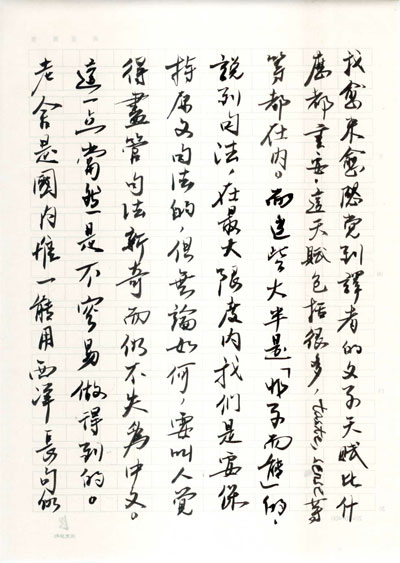 我愈来愈感覺到譯者的文学天賦比什
麽都重要。這天賦包括很多，taste, sense等
等都在内。而這些大半是「非学而能」的。
說到句法，在最大限度内我們是要保
持原文句法的，但無論如何，要叫人覺
得盡管句法新奇而仍不失為中文。
這一点當然是不容易做得到的。
老舍是國内惟一能用西洋長句